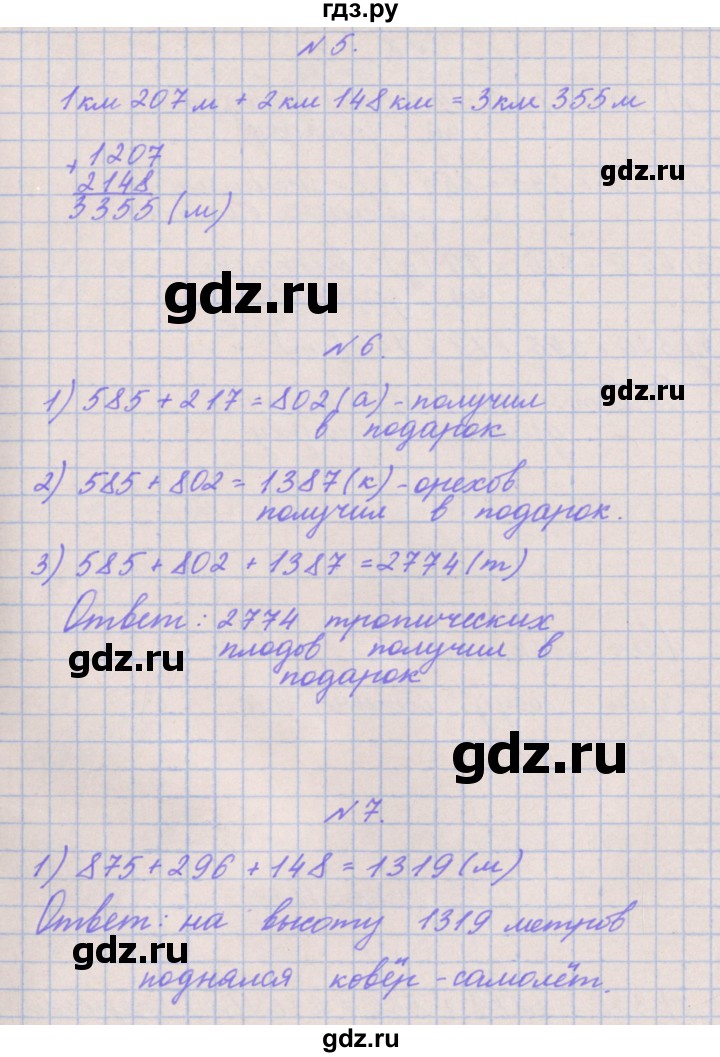 гдз.ру
N 5.
1 км 207 м + 2 км 148 км = 3 км 355 м
+ 1207
2148
3355 (м)
gdz.ru
gdz.ru
N 6.
1) 585 + 217 = 802 (а) - получил
gdz.ru
в подарок
2) 585 + 802 = 1387 (к) - орехов
получил в подарок.
3) 585 + 802 + 1387 = 2774 (т)
Ответ: 2774 тропических
плодов получил в
gdz.ru
подарок
gdz.ru
N 7.
1) 875 + 296 + 148 = 1319 (м)
Ответ: на высоту 1319 метров
gdz.ru
поднался ковёр-самолёт.
gdz.ru